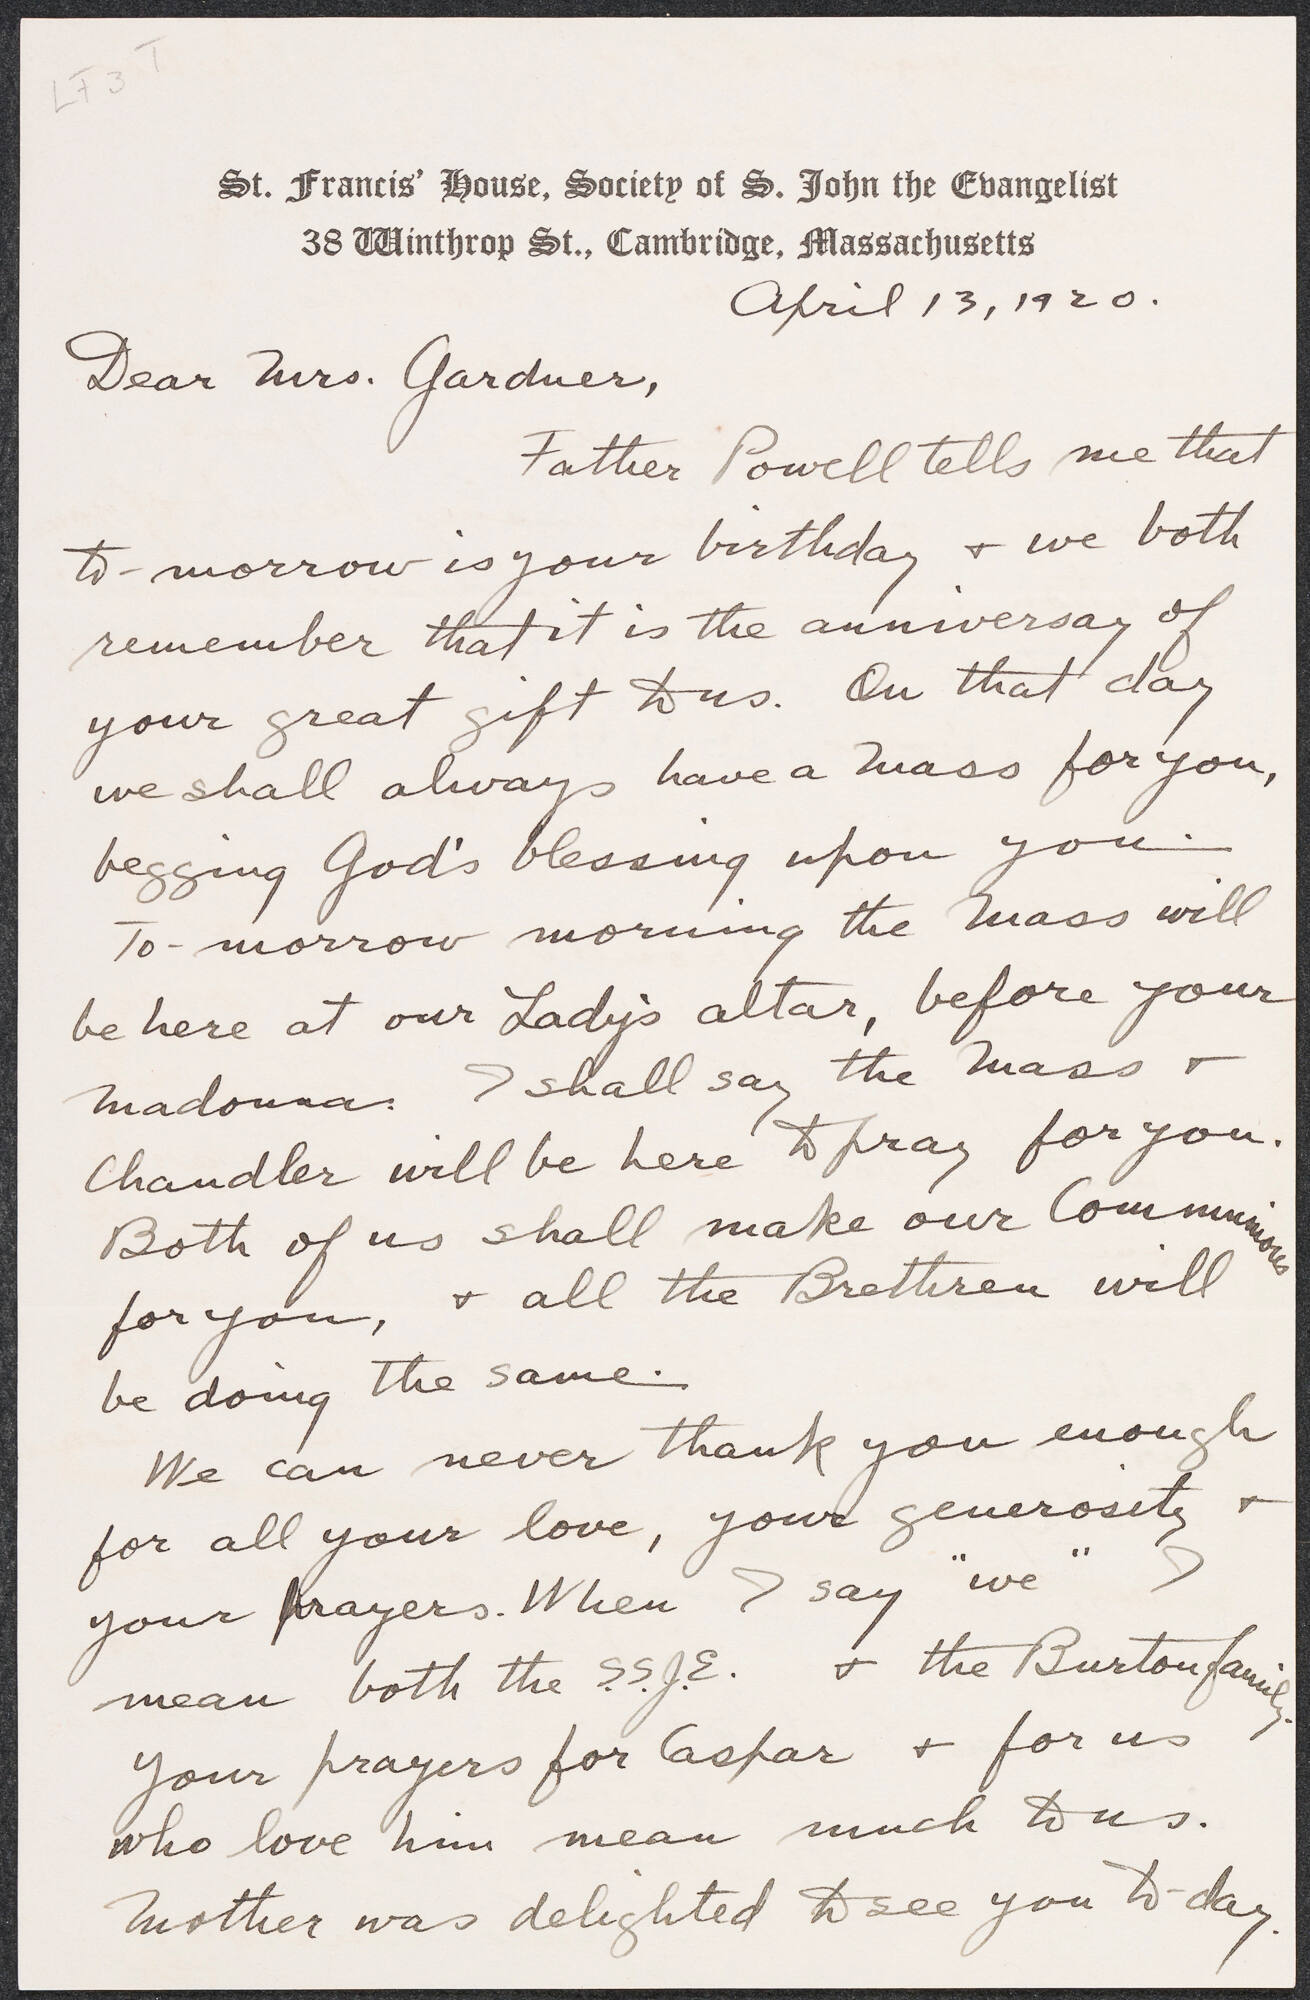 LF3T
St. Francis' House, Society of S. John the Evangelist
38 Winthrop St., Cambridge, Massachusetts
April 13, 1920.
Dear Mrs. Gardner,
Father Powell tells me that
to-morrow is your birthday & we both
remember that it is the anniversay of
your great gift to us. On that day
we shall always have a Mass for you,
begging God's blessing upon you.
To-morrow morning the Mass will
be here at our Lady's altar, before your
Madonna. I shall say the Mass &
Chandler will be here to pray for you.
Both of us shall make our Communions
for you, & all the Brethren will
be doing the same.
We can never thank you enough
for all your love, your generosity &
your prayers. When I say "we" I
mean both the S.S.J.E. & the Burton family.
Your prayers for Caspar & for us
who love him mean much to us.
Mother was delighted to see you to-day.